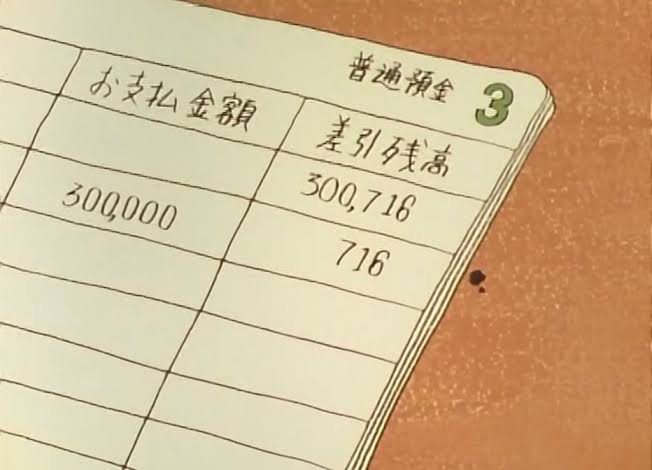 普通預金 3
お支払金額 差引残高
300,716
300,000 716